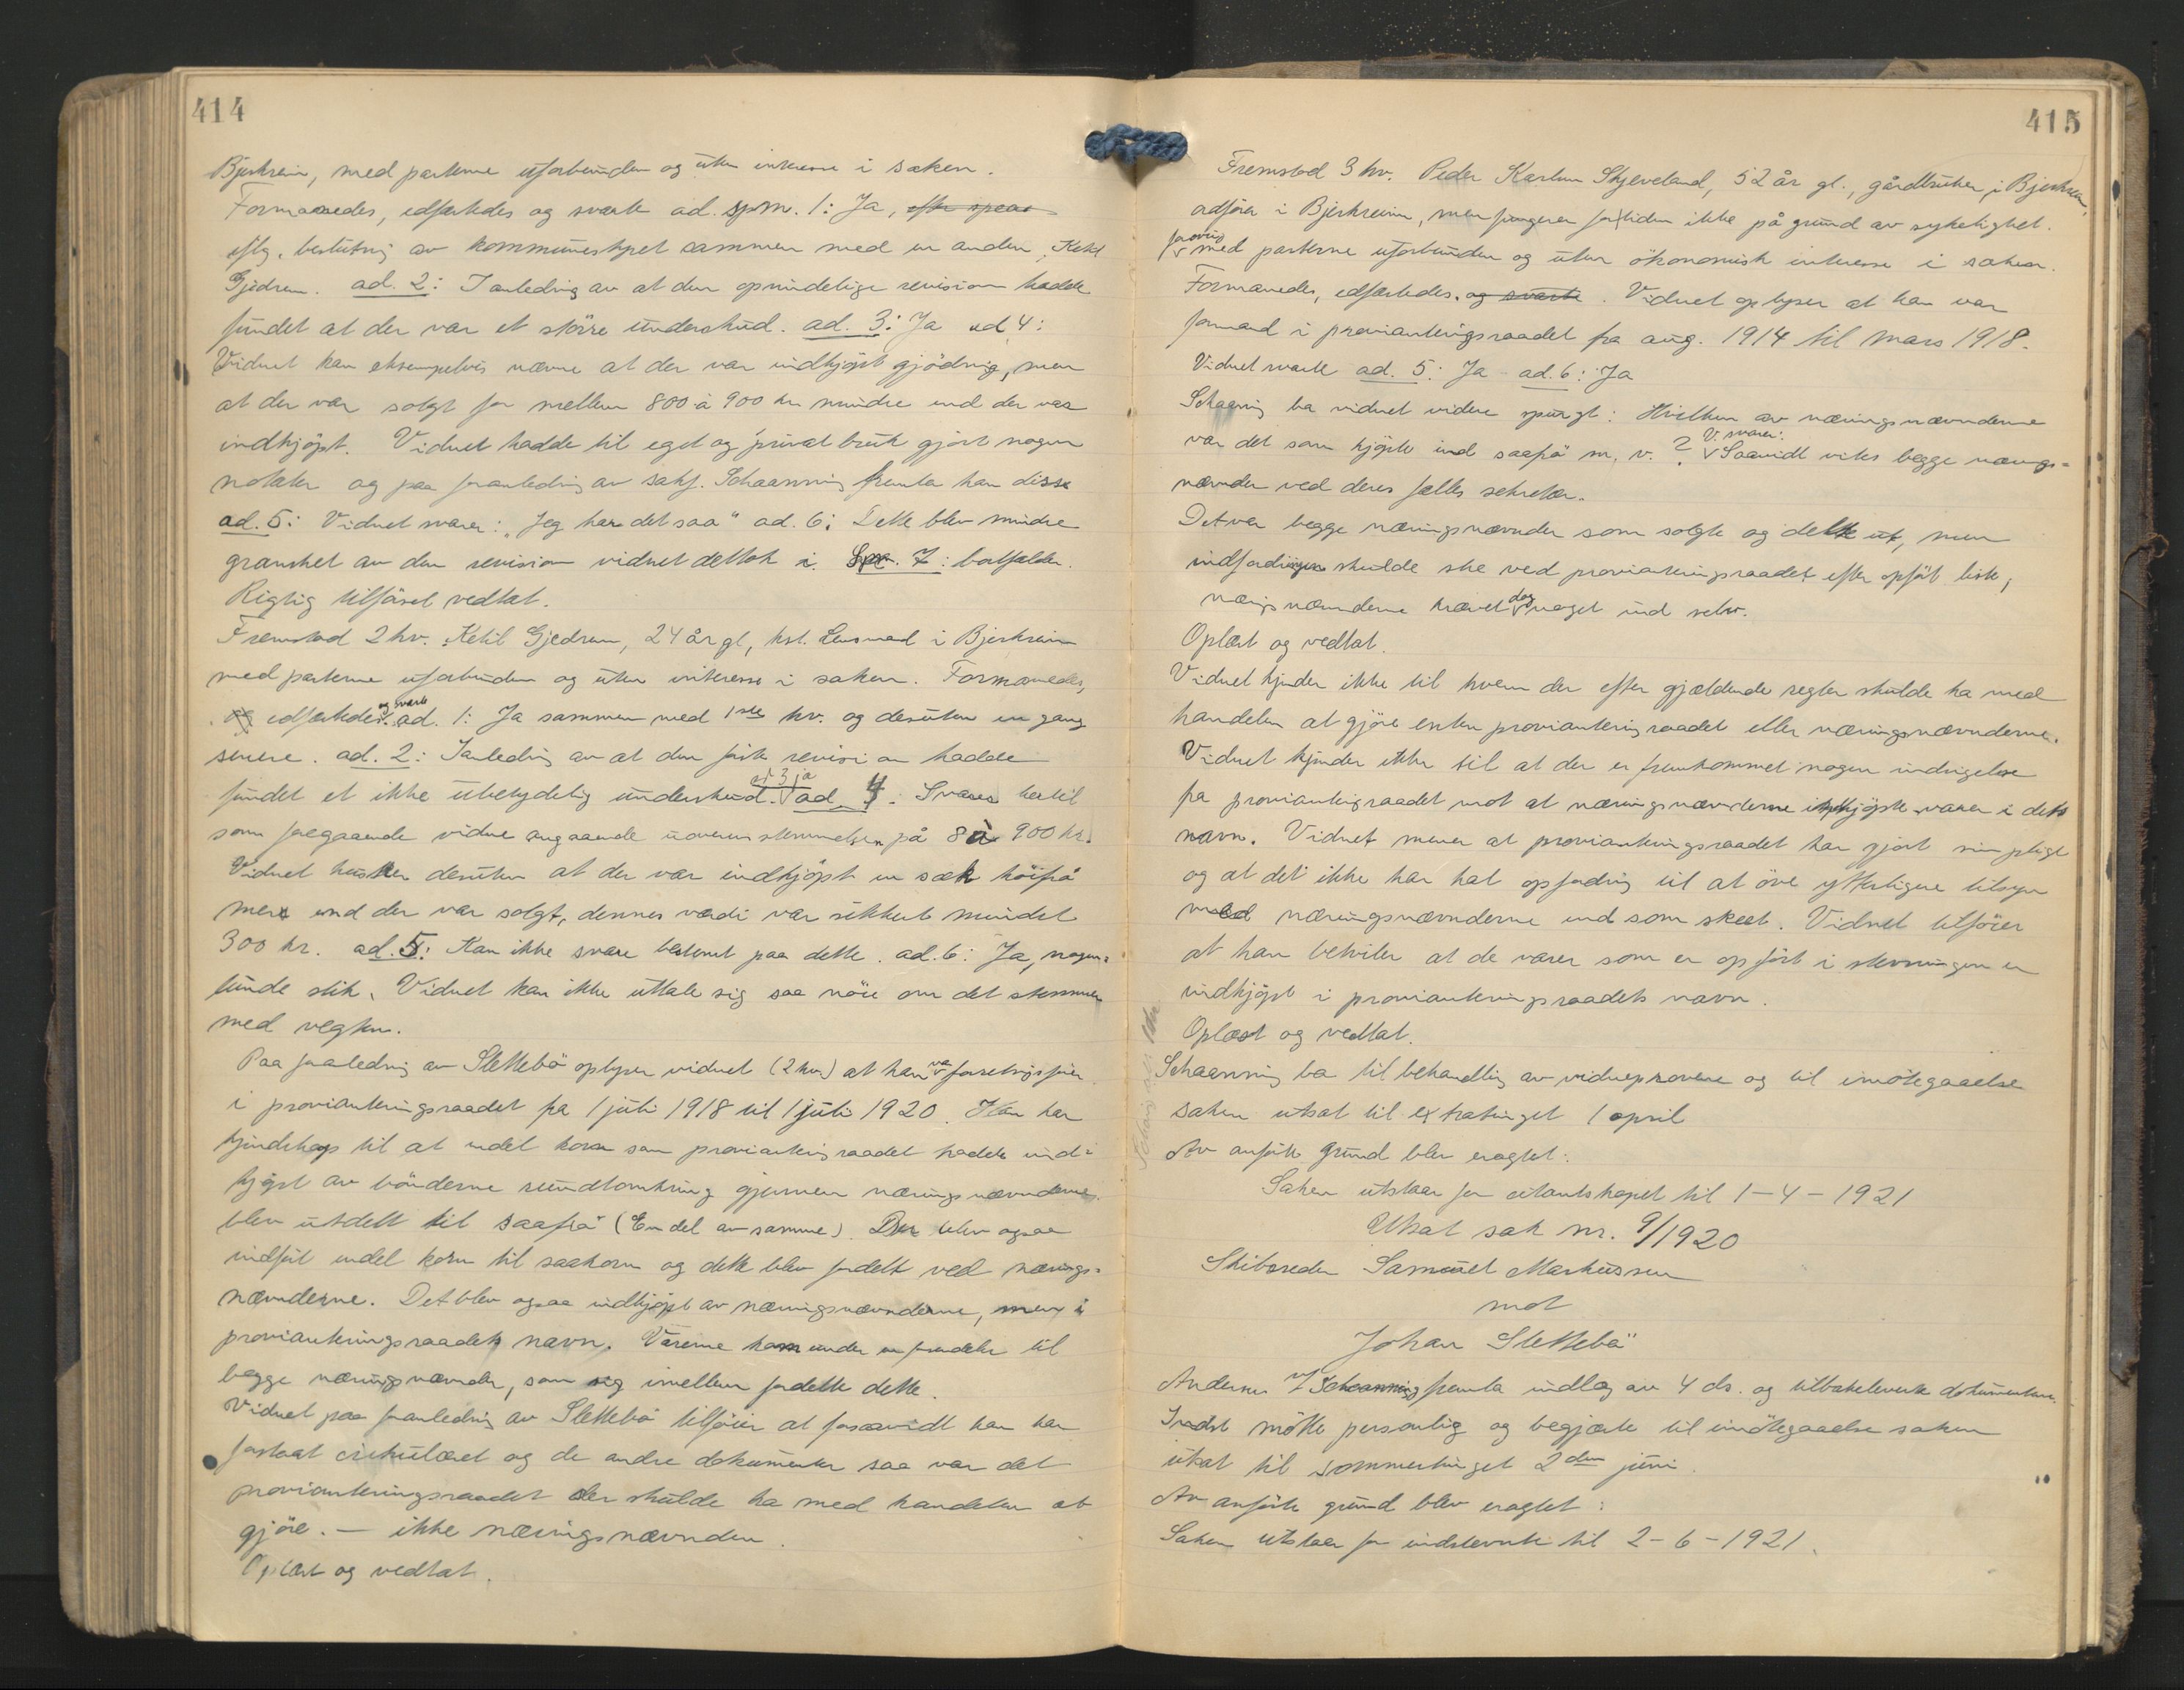 414
Bjerkreim, med parterne uforbunden og uten interesse i saken.
Formanedes, edfæstedes og svarte ad. spm. 1: Ja, efter spens
eftg. beslutning av kommunestyret sammen med en anden, Ketil
Gjedrem. ad. 2: I anledning av at den oprindelige revision hadde
fundet at der var et större underskud. ad. 3: Ja ad 4:
Vidnet kan eksempelvis nævne at der var indkjöpt gjödning, men
at der var solgt for mellem 800 à 900 kr mindre end der var
indkjöpt. Vidnet hadde til eget og privat bruk gjort nogen
notater og paa foranledning av sakf. Schaanning fremla han disse
ad. 5: Vidnet svarer: "Jeg har det saa" ad. 6: Dette blev mindre
gransket av den revision vidnet deltok i. Spm. 7: bortfalder.
Rigtig tilföiet vedtat.
Fremstod 2 hv. Ketil Gjedrem, 24 år gl, kst. Lensmand i Bjerkreim
med parterne uforbunden og uten interesse i saken. Formanedes,
og edfæstedes. og svarte ad. 1: Ja sammen med 1ste hv. og desuten en gang
senere. ad. 2: I anledning av at den förste revision hadde
fundet et ikke ubetydelig underskud. ad 3 ja ad 4: Svares hertil
som foregaaende vidne angaaende uoverensstemmelsen på 8 à 900 kr.
Vidnet husker desuten at der var indkjöpt en sæk höifrö
mere end der var solgt, dennes værdi var sikkert mindst
300 kr. ad. 5: Kan ikke svare bestemt paa dette. ad. 6: Ja, nogen=
lunde slik. Vidnet kan ikke uttale sig saa nöie om det stemmer
med vegten.
Paa foranledning av Slettebö oplyser vidnet (2 hv.) at han var forretningsförer
i provianteringsraadet fra 1 juli 1918 til 1 juli 1920. Han har
kjendskap til at endel korn som provianteringsraadet hadde ind=
kjöpt av bönderne rundtomkring gjennem næringsnævnderne
blev utdelt til saafrö (En del av samme). Der blev ogsaa
indfört endel korn til saakorn og dette blev fordelt ved nærings=
nævnderne. Det blev ogsaa indkjöpt av næringsnævnderne, men i
provianteringsraadets navn. Varerne kom under en fordeler til
begge næringsnævnder, som sig imellem fordelte dette.
Vidnet paa foranledning av Slettebö tilföier at forsaavidt han har
forstaat cirkulæret og de andre dokumenter saa var det
provianteringsraadet der skulde ha med handelen at
gjöre. - ikke næringsnævnden.
Oplæst og vedtat.
415
Fremstod 3 hv. Peder Karlsen Skjeveland, 52 år gl., gårdbruker i Bjerkreim,
ordförer i Bjerkreim, men fungerer fortiden ikke på grund av sykelighet.
forövrig med parterne uforbunden og uten ökonomisk interesse i saken.
Formanedes, edfæstedes. og svarte. Vidnet oplyser at han var
formand i provianteringsraadet fra aug. 1914 til mars 1918.
Vidnet svarte ad. 5: Ja - ad. 6: Ja
Schaanning ba vidnet videre spurgt: Hvilken av næringsnævnderne
var det som kjöpte ind saafrö m. v. ? V. svarer: Saavidt vites begge nærings=
nævnder ved deres fælles sekretær.
Det var begge næringsnævnder som solgte og delte ut, men
indfordringen skulde ske ved provianteringsraadet efter opfört liste,
næringsnævnderne krævet dog noget ind selv.
Oplæst og vedtat.
Vidnet kjender ikke til hvem der efter gjældende regler skulde ha med
handelen at gjöre enten provianteringsraadet eller næringsnævnderne.
Vidnet kjender ikke til at der er fremkommet nogen indsigelse
fra provianteringsraadet mot at næringsnævnderne indkjöpte varer i dets
navn. Vidnet mener at provianteringsraadet har gjort sin pligt
og at det ikke har hat opfordring til at öve ytterligere tilsyn
med næringsnævnderne end som skeet. Vidnet tilföier
at han betviler at de varer som er opfört i stevningen er
indkjöpt i provianteringsraadets navn.
Oplæst og vedtat.
Schaanning ba til behandling av vidneprovene og til imötegaaelse
saken utsat til extratinget 1 april
Av anförte grund blev eragtet:
Saken utstaar for citantskapet til 1-4-1921
Utsat sak nr. 9/1920
Skibsreder Samuel Markussen
mot
Johan Slettebö
Andersen v/ Schaanning fremla indlæg av 4 ds. og tilbakeleverte dokumenterne.
Indst mötte personlig og begjærte til imötegaaelse saken
utsat til sommertinget 2den juni.
Av anförte grund blev eragtet:
Saken utstaar for indstevnte til 2-6-1921.